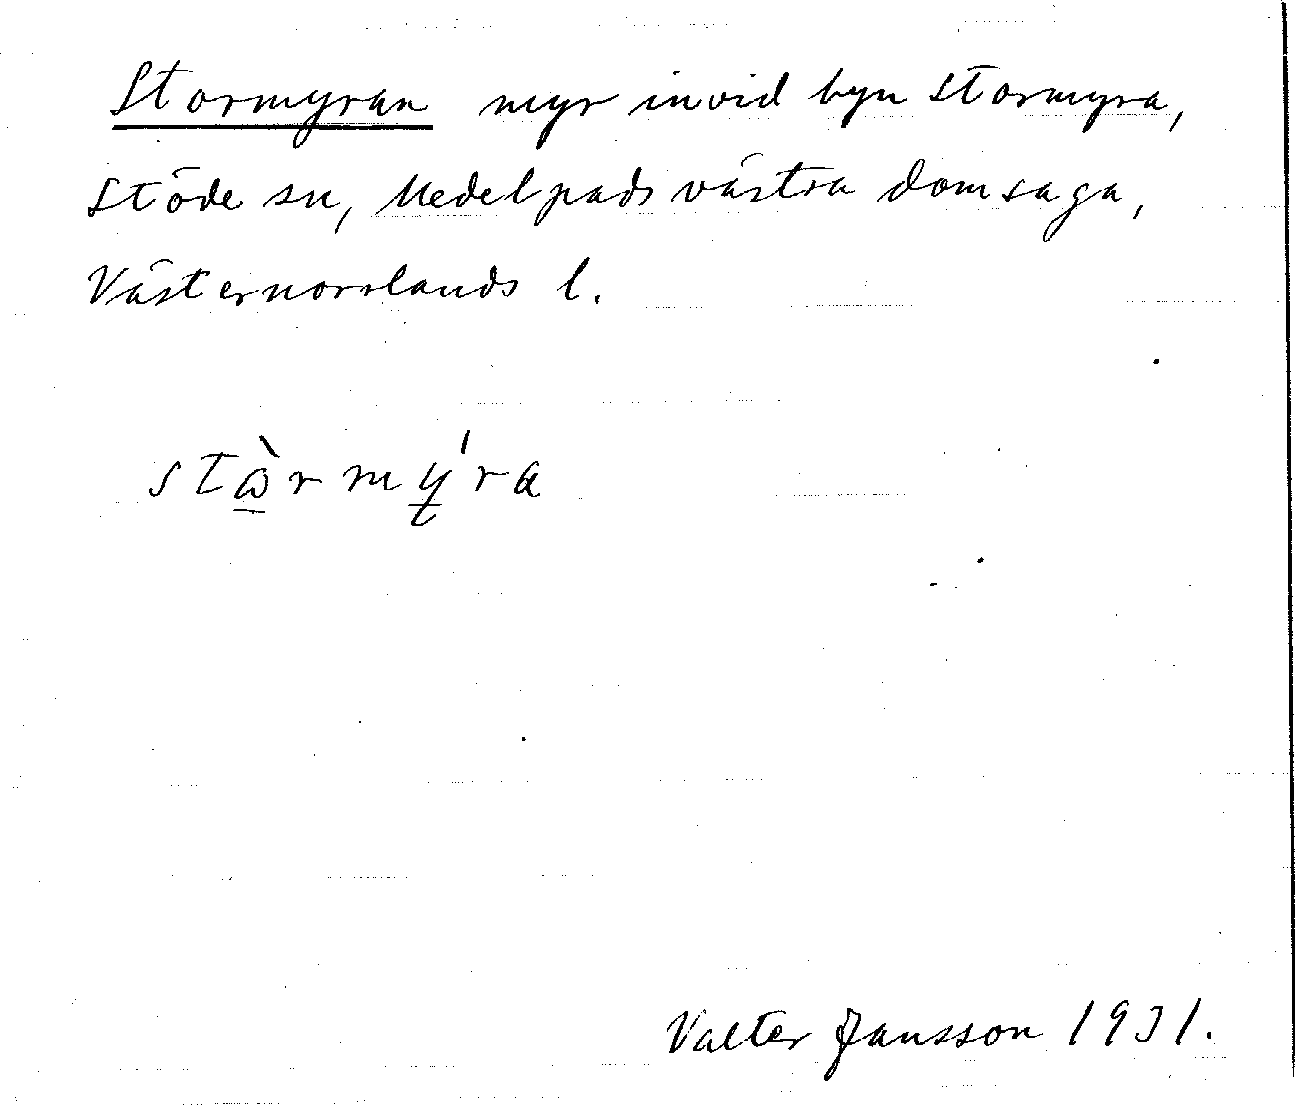 Stormyran myr invid byn Stormyra,
Stöde sn, Medelpads västra domsaga,
Västernorrlands l.
stὼ̲rmý̲ra
Valter Jansson 1931.